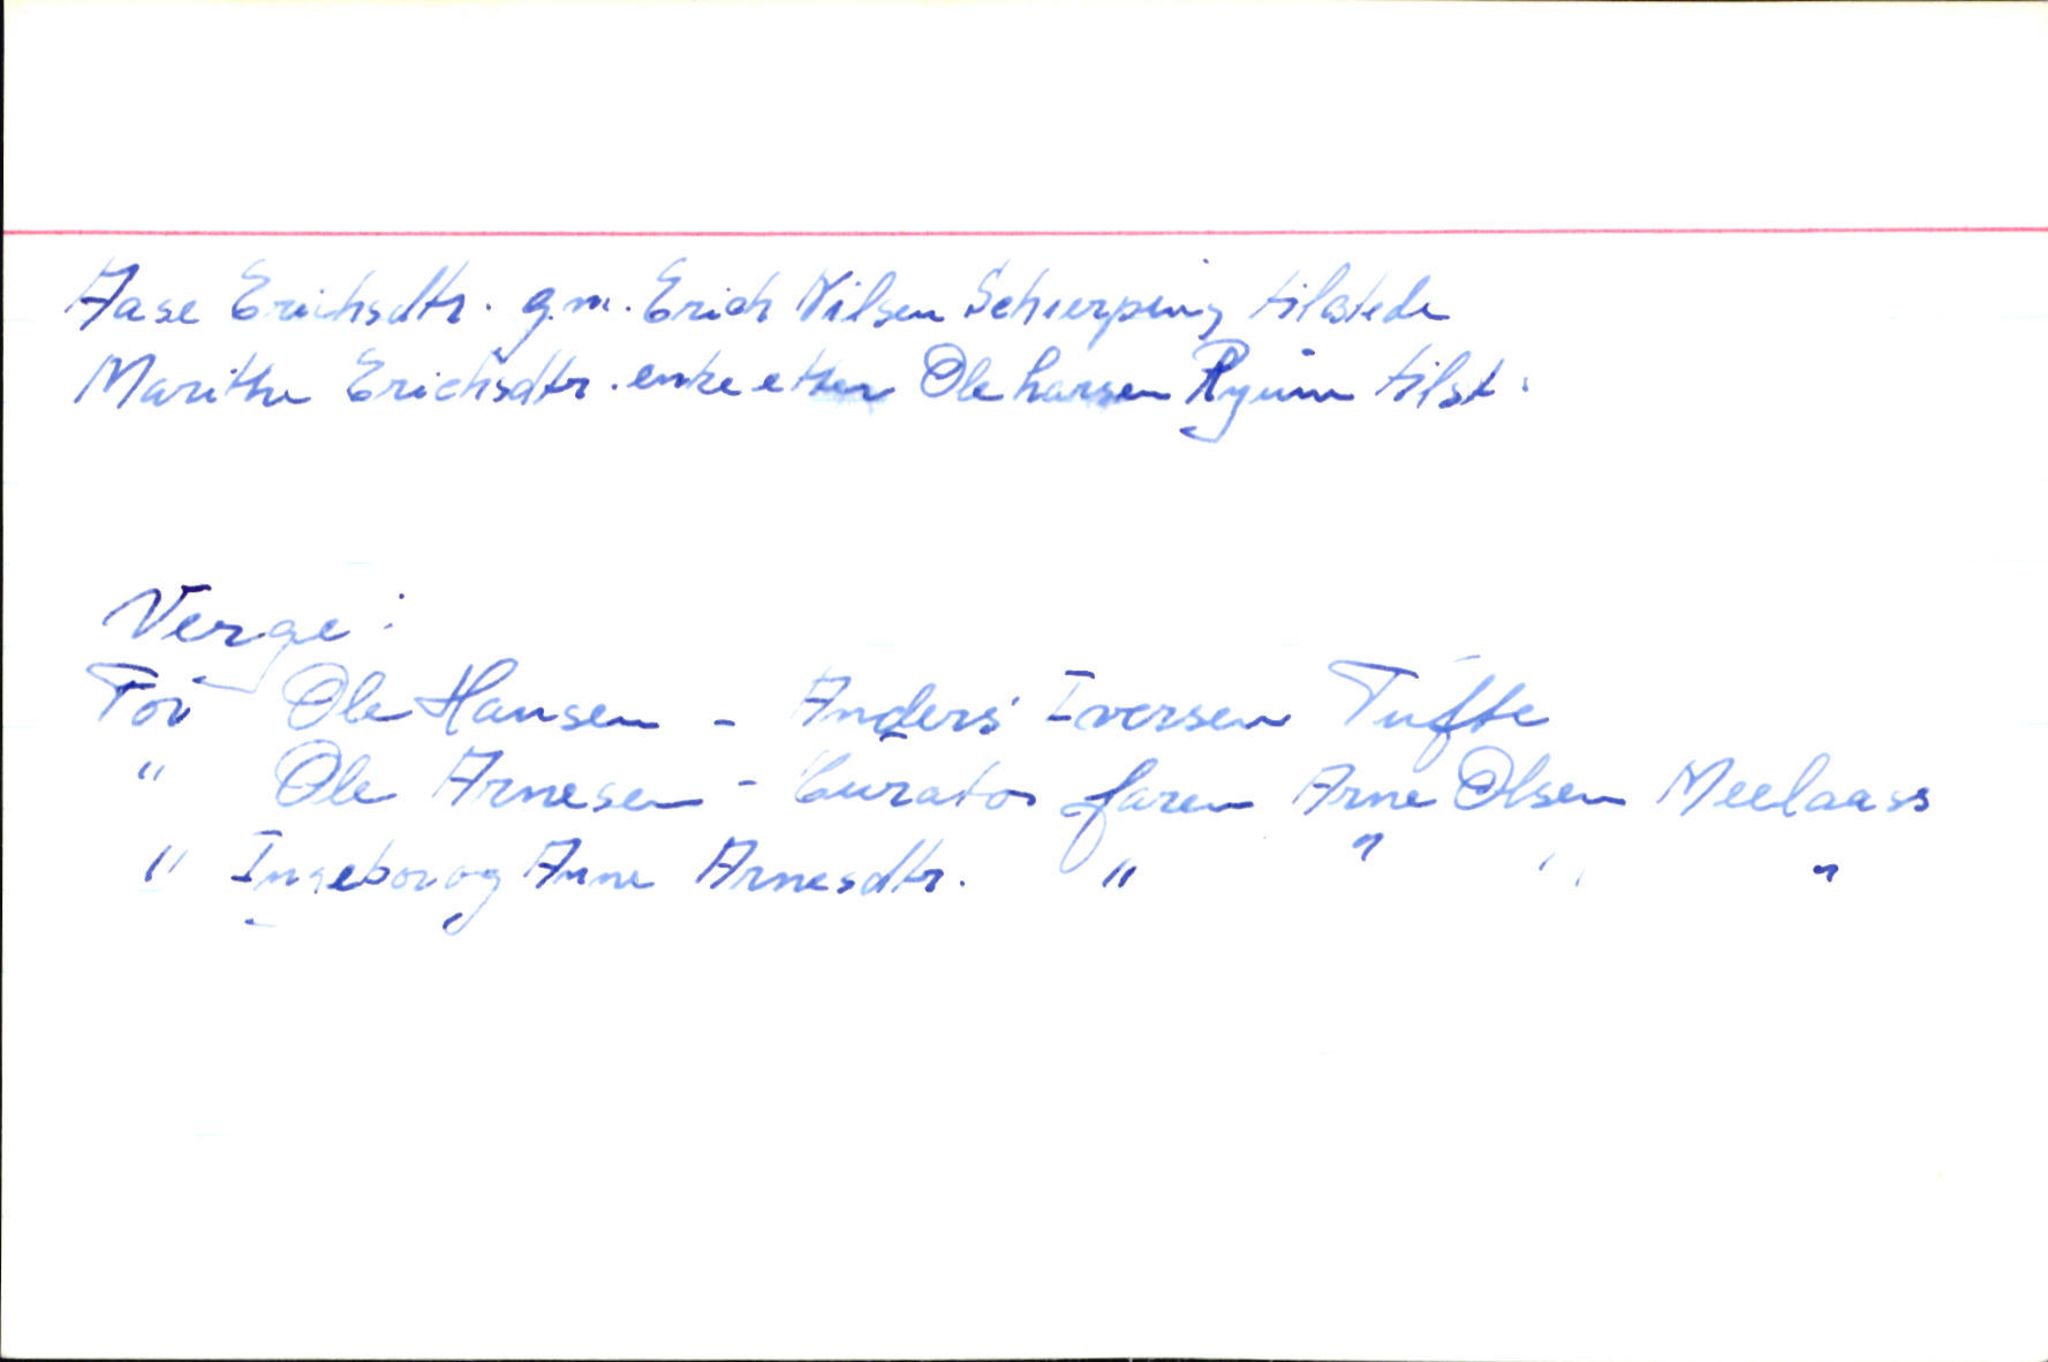 Aase Erichsdtr. g.m. Erich Nilsen Schierping tilstede
Marithe Erichsdtr. enke etter Ole hansen Ryum tilst.
Verge:
For Ole Hansen - Anders Iversen Tufte
" Ole Arnesen - Curator faren Arne Olsen Meelaass
" Ingeborg Anne Arnesdtr. " " " "